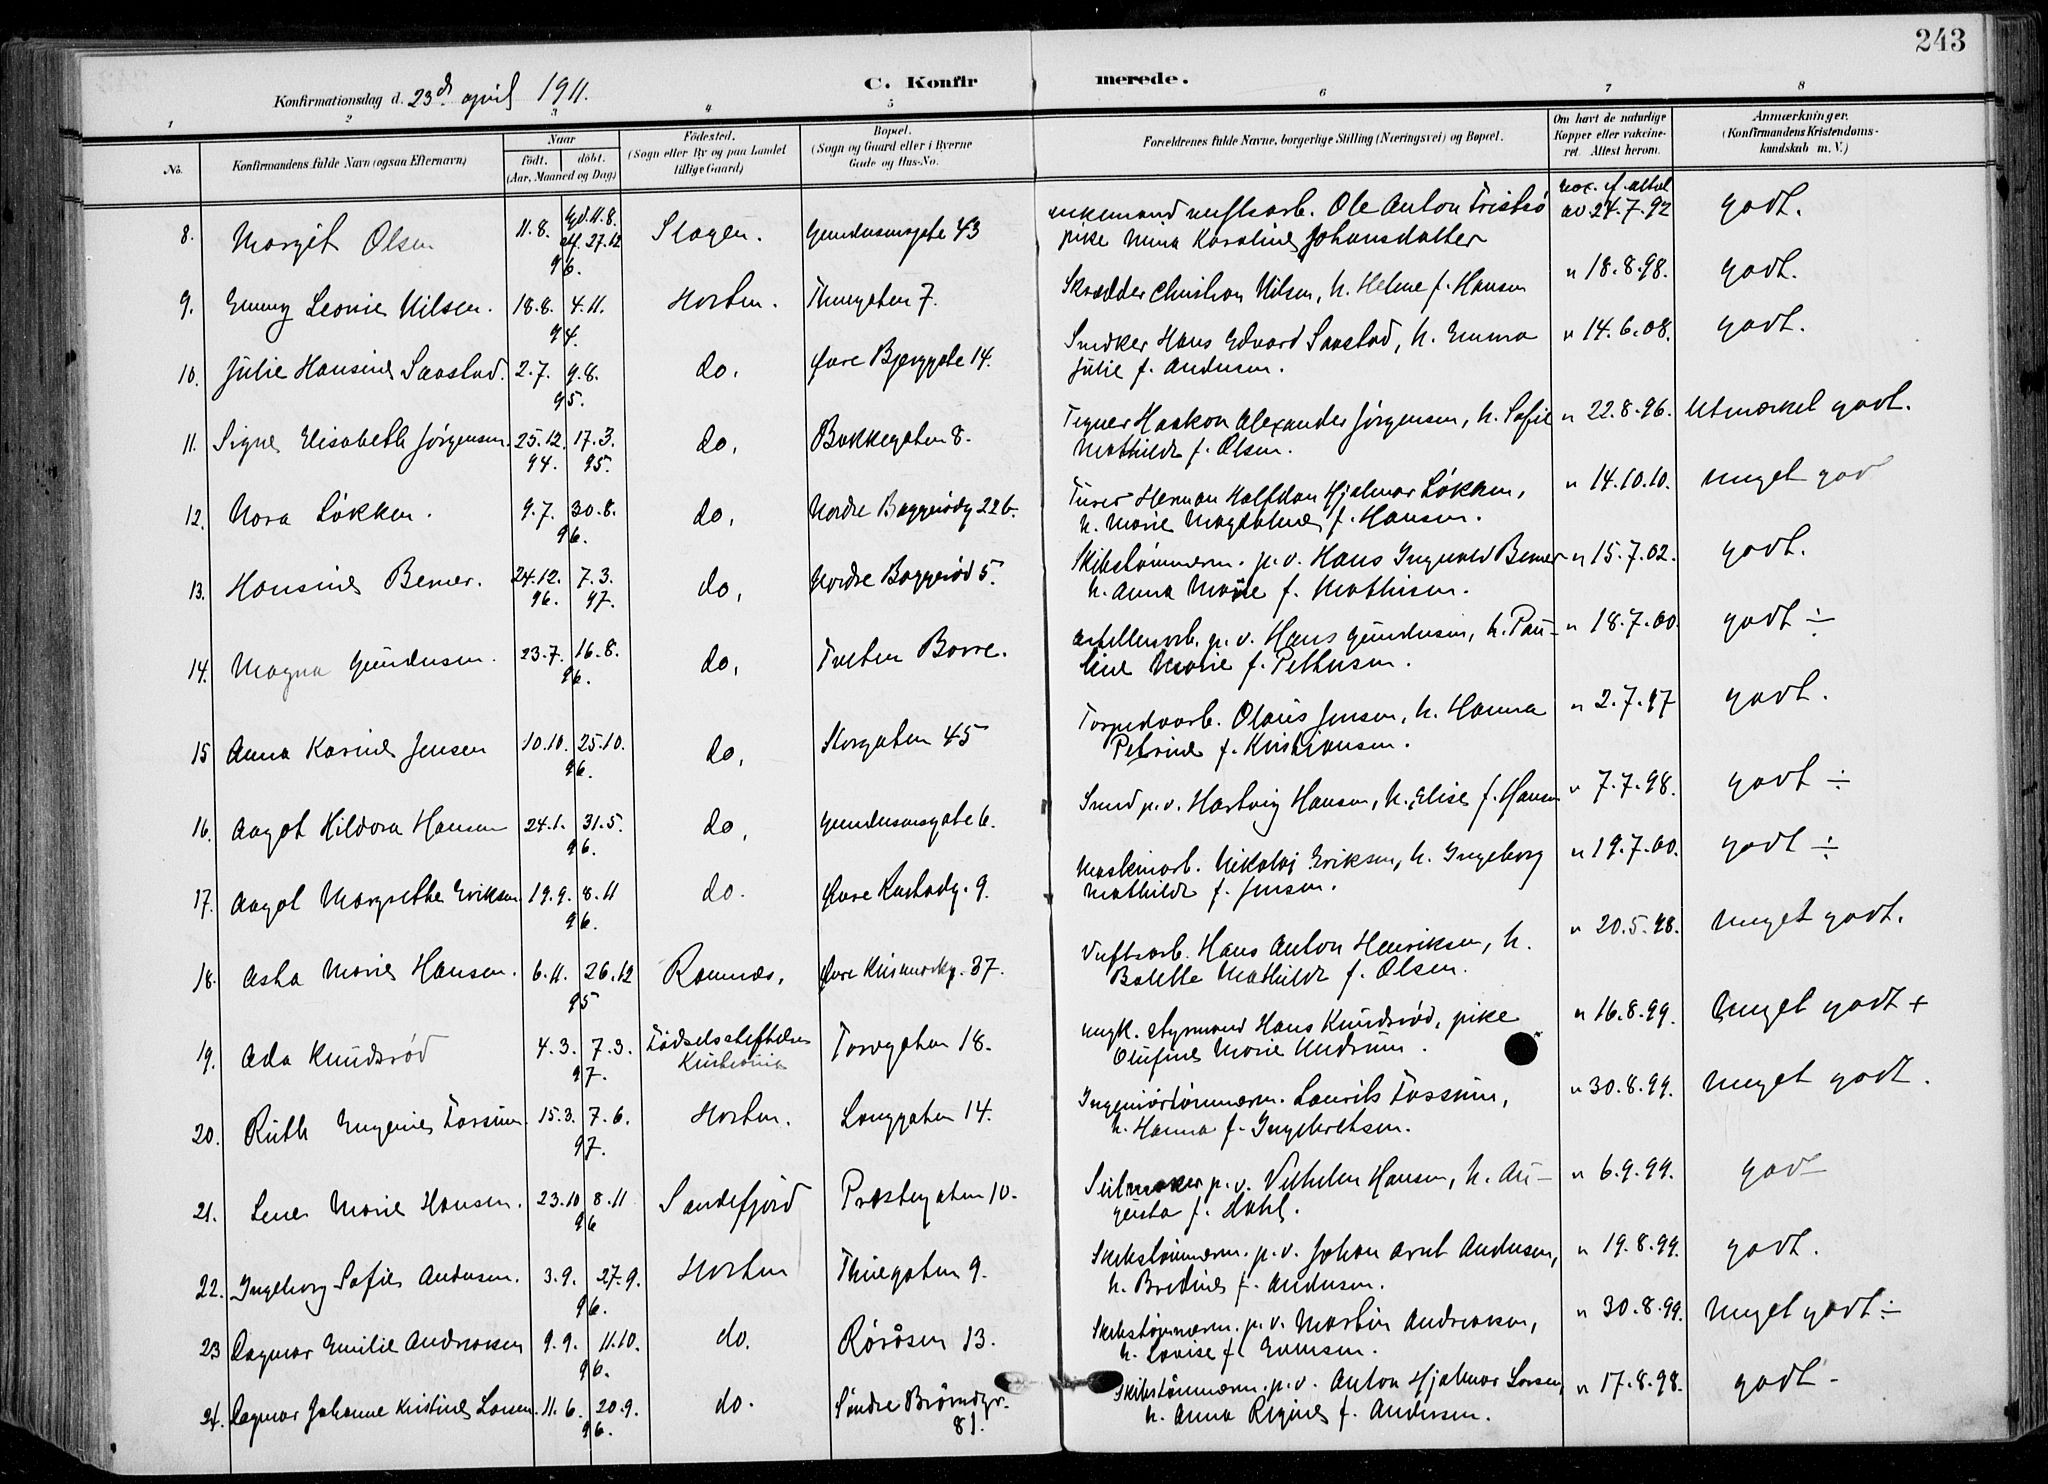 243
C. Konfirmerede.
Konfirmationsdag d. 23de april 1911.
1 2 3 4 5 6 7 8
No. Konfirmandens fulde Navn (ogsaa Efternavn) Naar født. døbt. (Aar, Maaned og Dag) Fødested. (Sogn eller By og paa Landet tillige Gaard) Bopæl. (Sogn og Gaard eller i Byerne Gade og Hus-No. Forældrenes fulde Navne, borgerlige Stilling (Næringsvei) og Bopæl. Om havt de naturlige Kopper eller vakcineret. Attest herom. Anmærkninger. (Konfirmandens Kristendomskundskab m. V.)
8. Margit Olsen 11.8. 11.8. 27.12 96. Slagen. Gundersensgate 43 enkemand verftsarb. Ole Anton av 24.7.92 godt.
pike Mina Karoline Johansdatter
9. Emmy Leonie Nilsen. 18.8. 4.11. 94. Horten. Thuegaten 7. Skrædder Christian Nilsen, h. Helene f. Hansen " 18.8.98. godt.
10. Julie Hansine Saastad. 2.7. 9.8. 95. do. Øvre Bjerggate 14. Snedker Hans Edvard Saastad, h. Emma " 14.6.08. godt.
Julie f. Andersen.
11. Signe Elisabeth Jørgensen. 25.12. 94. 17.3. 95. do. Bakkegaten 8. Tegner Haakon Alexander Jørgensen, h. Sofie " 22.8.96. Utmerket godt.
Mathilde f. Olsen.
12. Nora Løkken. 9.7. 30.8. 96. do. Nordre Baggerødg 22b. Herman Halfdan Hjalmar Løkken, " 14.10.10. meget god
h. Marie Magdalene f. Hansen.
13. Hansine Bemer. 24.12. 96. 7.3. 97. do. Nordre Baggerød 5. Skibstømmerm. p.v. Hans Ingvald Bemer " 15.7.02. godt.
h. Anna Marie f. Mathisen.
14. Magna Gundersen. 23.7. 16.8. 96. do. Tveten Borre. Artelleriarb. p.v. Hans Gundersen, h. Pau- " 18.7.00. godt ÷
line Marie f. Pettersen.
15 Anna Karine Jensen 10.10. 25.10. 96. do. Storgaten 45 Torpedoarb. Olaus Jensen, h. Hanna " 2.7.97 godt.
Petrine f. Kristiansen.
16. Aagot Hildora Hansen 24.1. 31.5. 96. do. Gundersensgate 6. Smed p.v. Hartvig Hansen, h. Elise f. Hansen " 7.7.98. godt ÷
17. Aagot Margrethe Eriksen 19.9. 8.11 96. do. Øvre 9. Maskinarb. Nikolai Eriksen, h. Ingeborg " 19.7.00. godt ÷
Mathilde f. Jensen.
18. Asta Marie Hansen. 6.11. 26.12 95 Ramnæs. Øvre 37. Verftsarb. Hans Anton Henriksen, h. " 20.5.98. meget godt.
Bolette Mathilde f. Olsen.
19. Ada Knudsrød 4.3. 7.3. 97. Fødselsstiftelsen Kristiania Torvgaten 18. ungk. styrmand Hans Knudsrød, pike " 16.8.99. meget godt +
Olufine Marie Undrum.
20. Ruth Eugenie Fossum. 15.3. 7.6. 97. Horten. Langgaten 14. Ingeniørtømmerm. Laurits Fossum, " 30.8.99. meget godt.
h. Hanna f. Ingebretsen.
21. Lene Marie Hansen. 23.10 8.11 96 Sandefjord Prestegaten 10. Seilmaker p.v. Vilhelm Hansen, h. Au- " 6.9.99. godt
gusta f. Dahl.
22. Ingeborg Sofie Andersen. 3.9. 27.9. 96. Horten Thuegaten 9. Skibstømmerm. p.v. Johan Arnt Andersen, " 19.8.99. godt.
h. Bredine f. Andersen.
23 Dagmar Emilie Andreasen 9.9. 11.10. 96. do. Røråsen 13. Skibstømmerm. p.v. Martin Andreasen, " 30.8.99. Meget godt ÷
h. Lovise f. Evensen.
24. Dagmar Johanne Kristine Larsen. 11.6. 20.9. 96. do. Søndre 81. Skibstømmerm. p.v. Anton Hjalmar Larsen, " 17.8.98. godt -
h. Anna Regine f. Andersen.